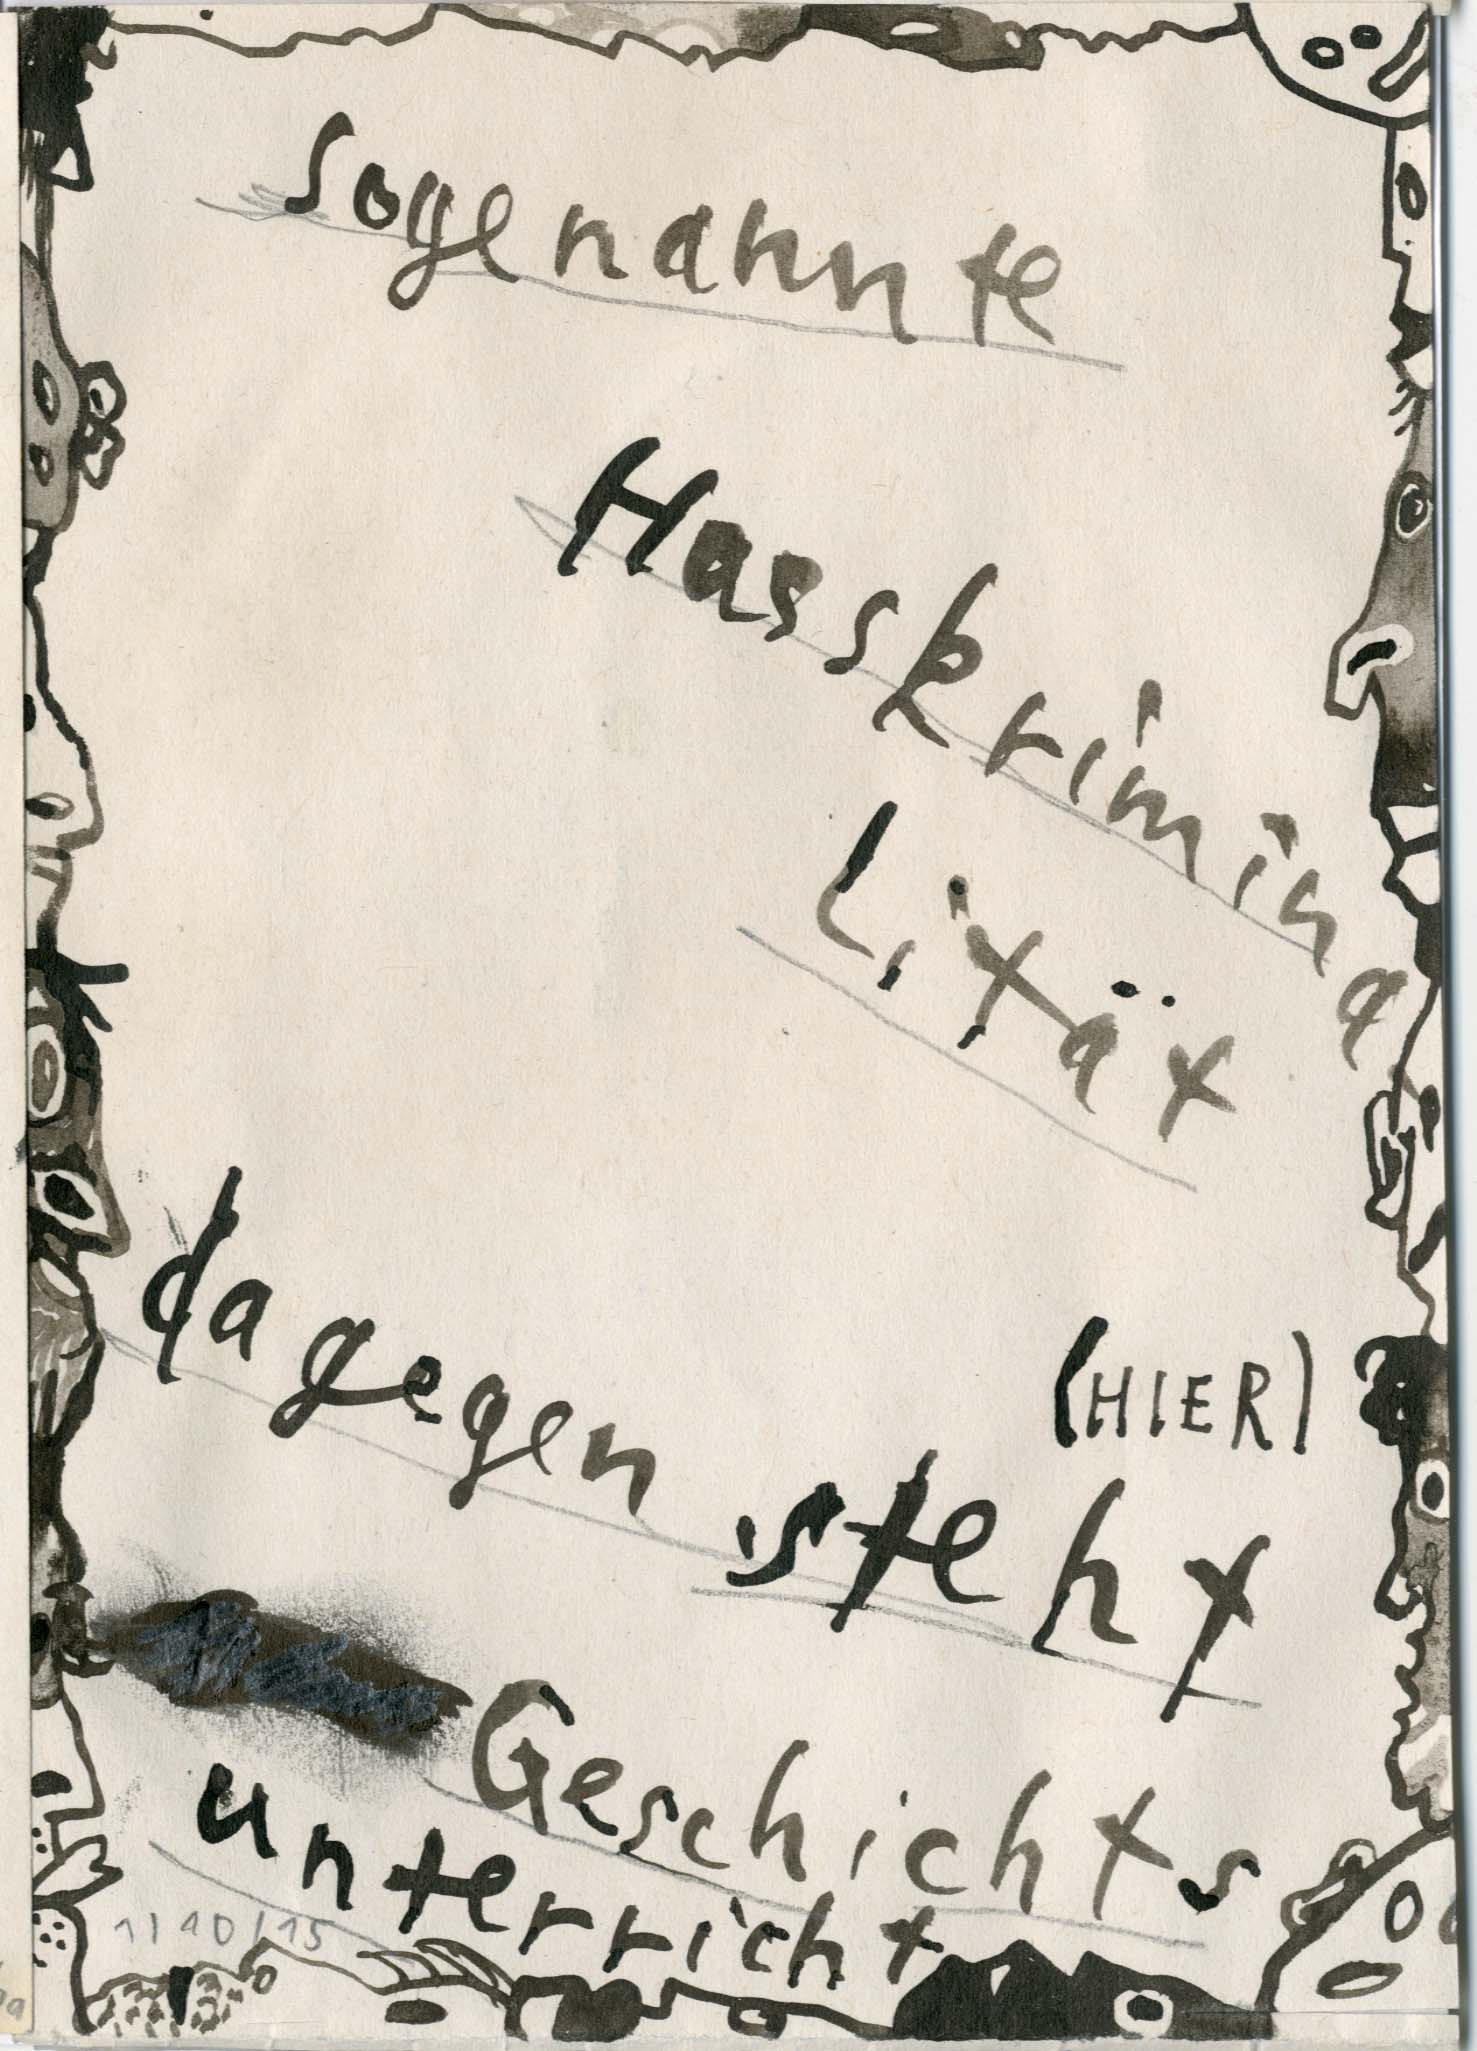 sogenannte
Hasskrimina
Lität
dagegen
(HIER)
steht
Geschichts
unterricht